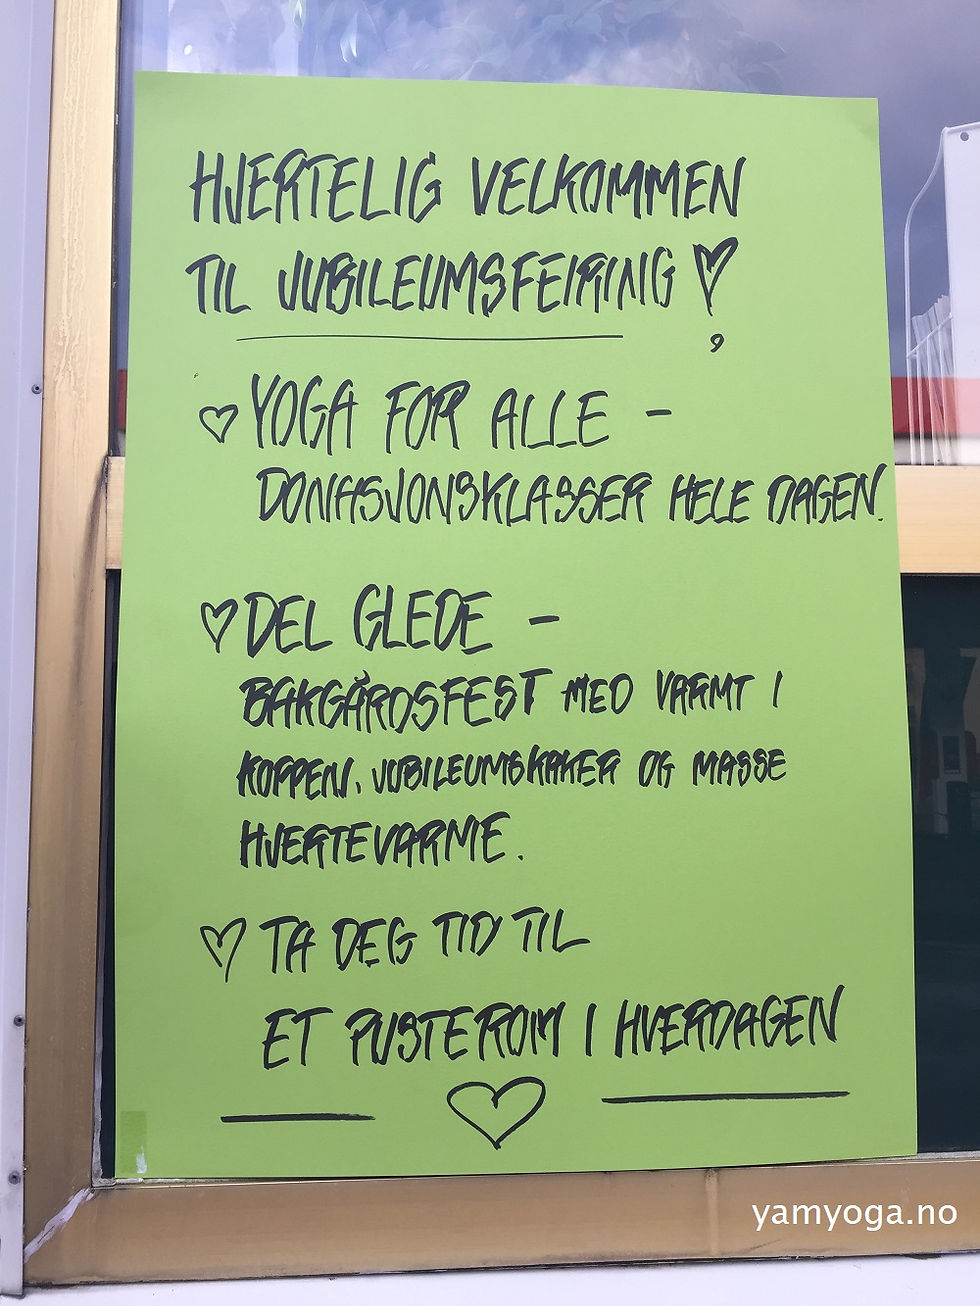 HJERTELIG VELKOMMEN
TIL JUBILEUMSFEIRING
YOGA FOR ALLE -
DONASJONSKLASSER HELE DAGEN.
DEL GLEDE -
BAKGÅRDSFEST MED VARMT I
KOPPEN, JUBILEUMSKAKER OG MASSE
HJERTEVARME.
TA DEG TID TIL
ET PUSTEROM I HVERDAGEN
yamyoga.no